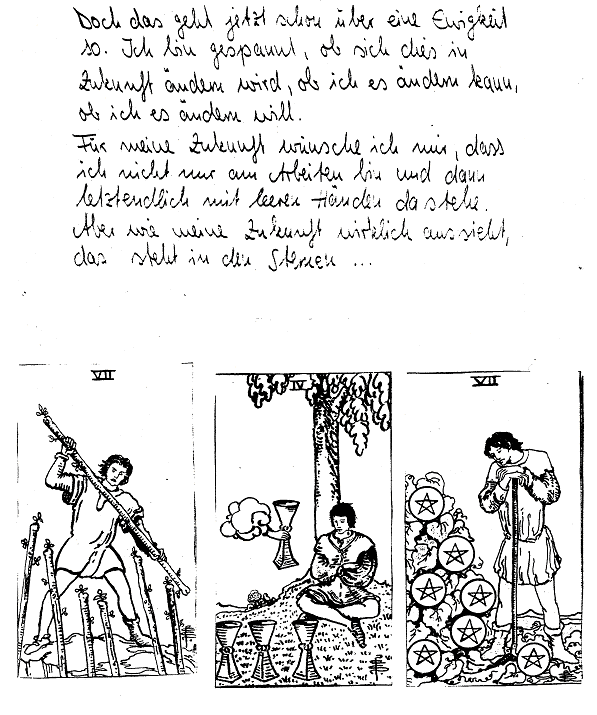 Doch das geht jetzt schon über eine Ewigkeit
so. Ich bin gespannt, ob sich dies in
Zukunft ändern wird, ob ich es ändern kann,
ob ich es ändern will.
Für meine Zukunft wünsche ich mir, dass
ich nicht nur am Arbeiten bin und dann
letztendlich mit leeren Händen da stehe.
Aber wie meine Zukunft wirklich aussieht,
das steht in den Sternen ...
VII
IV
VII